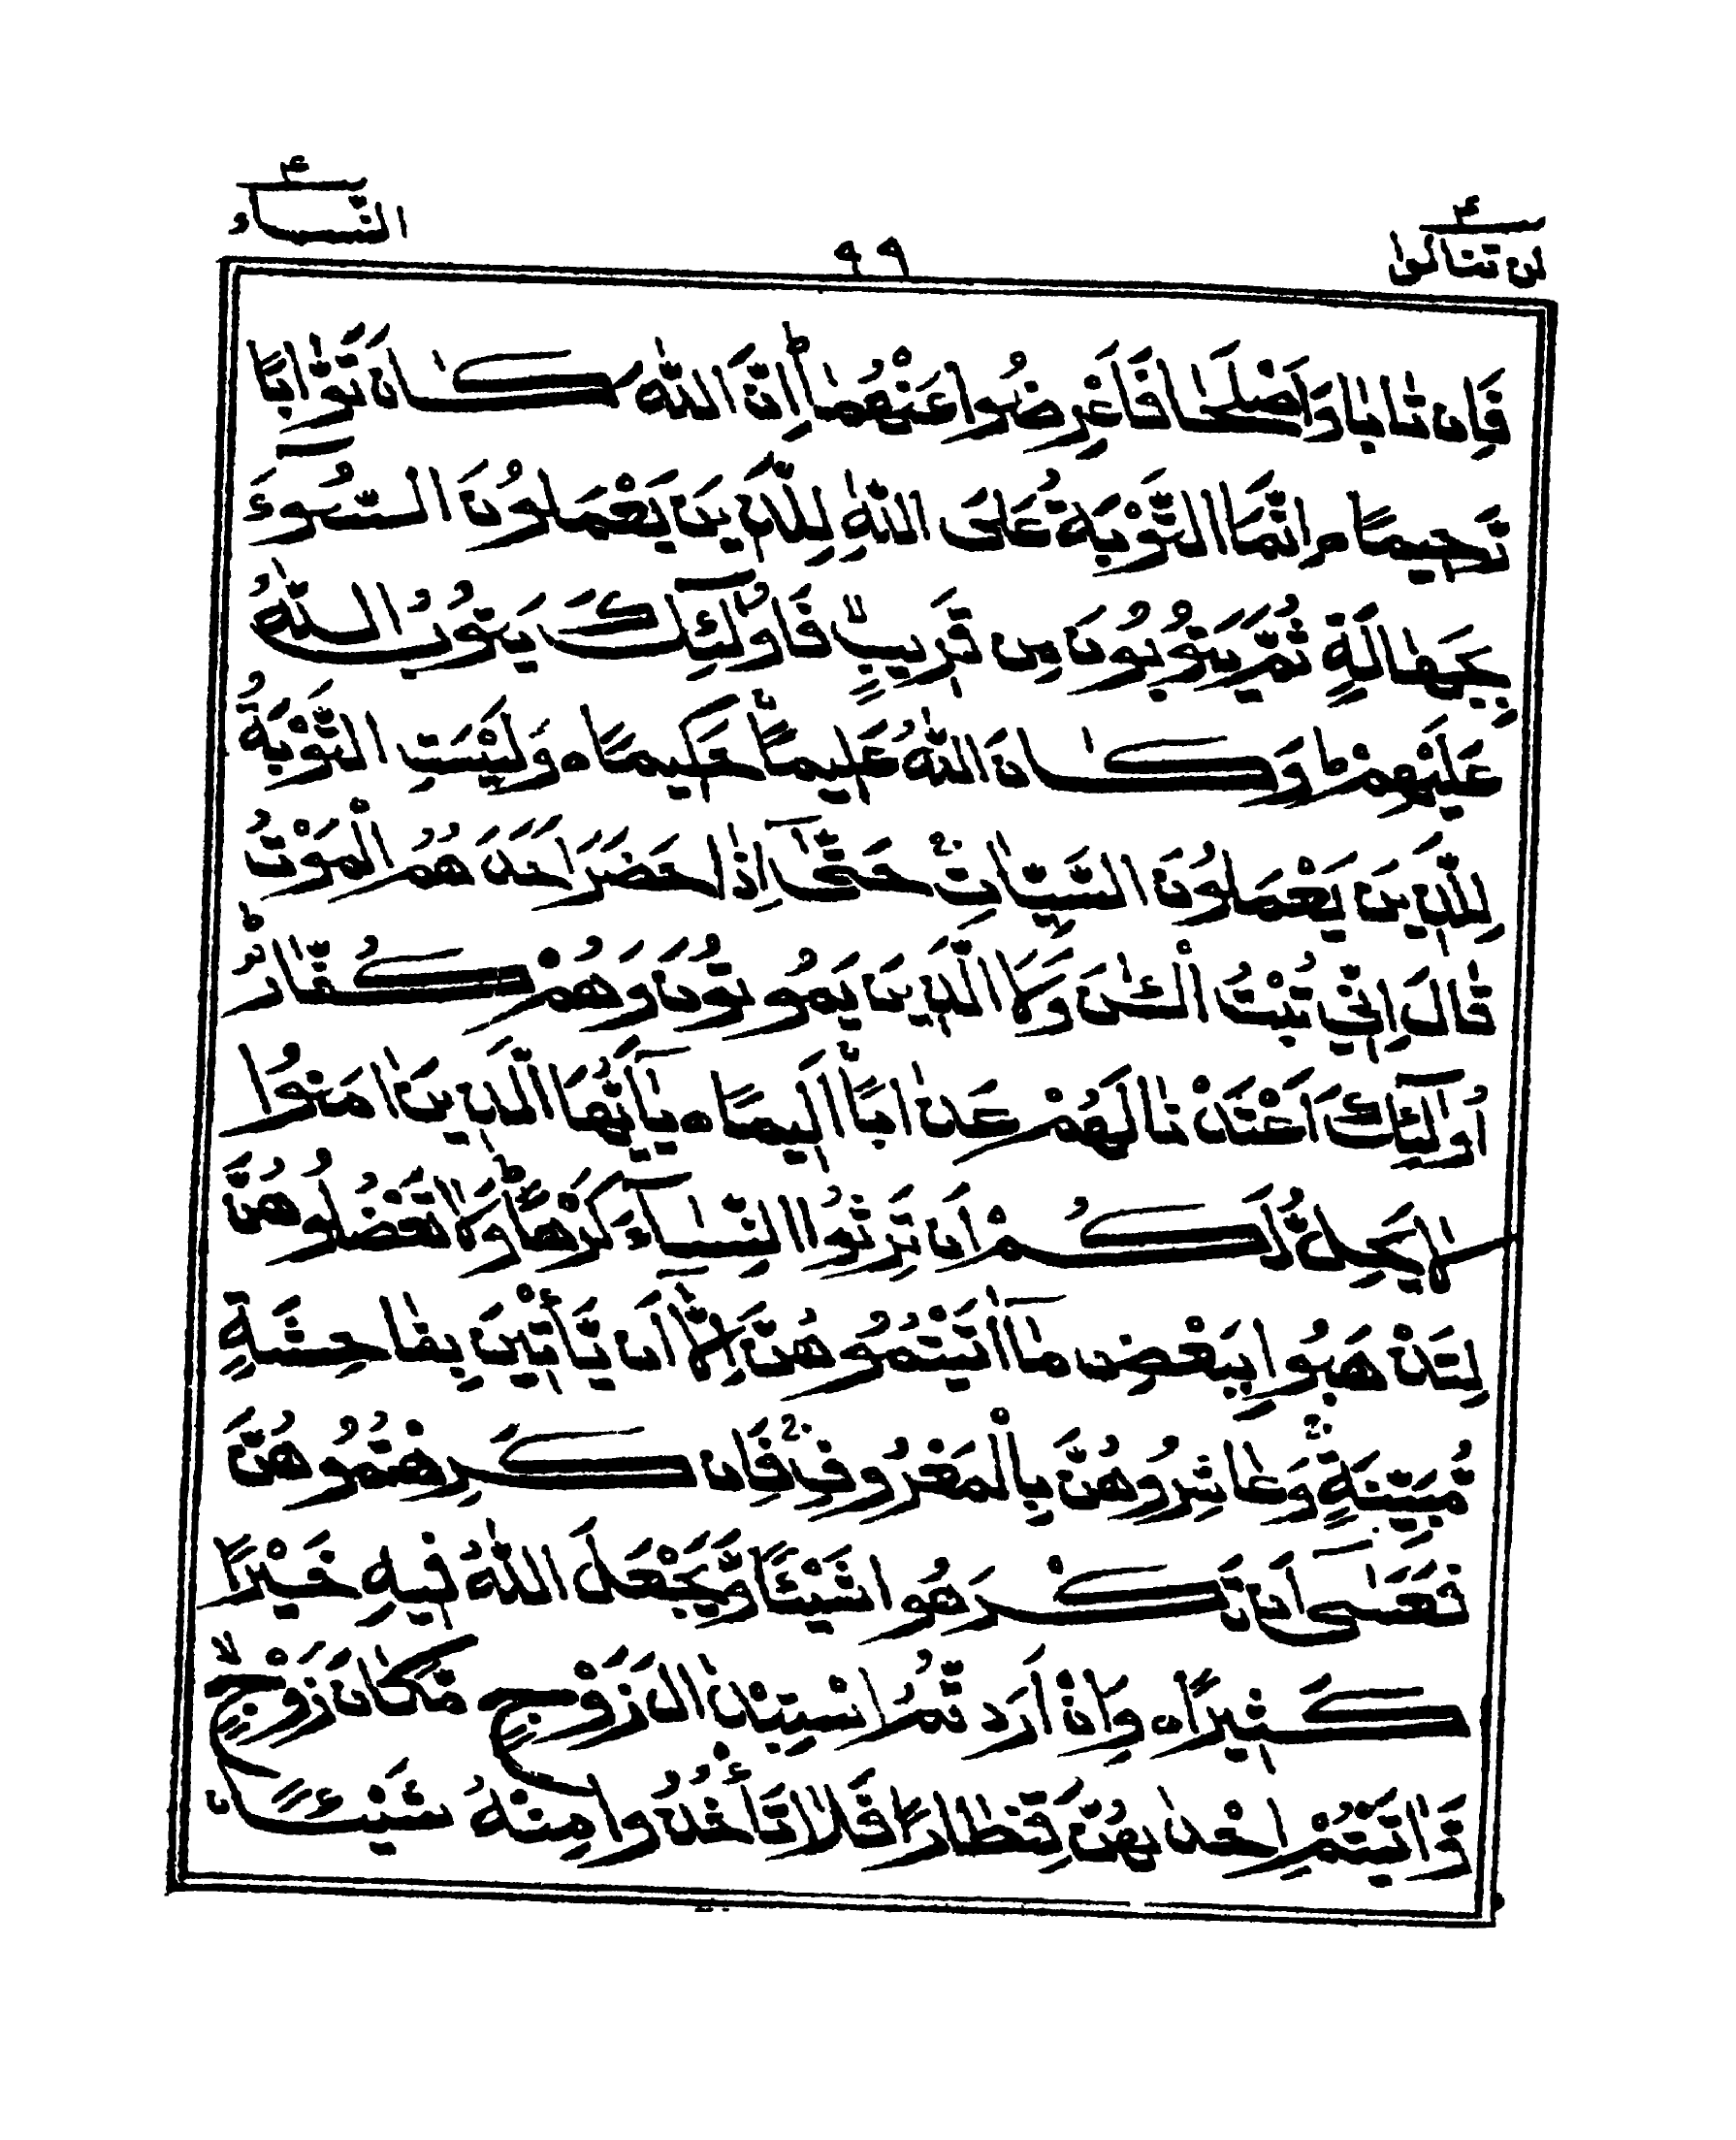 لن تنالوا ٤
٩٩
النّسآء ٤
فَاِنْ تَابَا وَاَصْلَحَا فَاَعْرِضُوْا عَنْهُمَا ؕ اِنَّ اللّٰهَ كَانَ تَوَّابًا
رَّحِيْمًا ٥ اِنَّمَا التَّوْبَةُ عَلَى اللّٰهِ لِلَّذِيْنَ يَعْمَلُوْنَ السُّوْٓءَ
بِجَهَالَةٍ ثُمَّ يَتُوْبُوْنَ مِنْ قَرِيْبٍ فَاُولٰٓئِكَ يَتُوْبُ اللّٰهُ
عَلَيْهِمْ ؕ وَكَانَ اللّٰهُ عَلِيْمًا حَكِيْمًا ٥ وَلَيْسَتِ التَّوْبَةُ
لِلَّذِيْنَ يَعْمَلُوْنَ السَّيِّاٰتِ ۚ حَتّٰٓى اِذَا حَضَرَ اَحَدَهُمُ الْمَوْتُ
قَالَ اِنِّيْ تُبْتُ الْـٰٔنَ وَلَا الَّذِيْنَ يَمُوْتُوْنَ وَهُمْ كُفَّارٌ ؕ
اُولٰٓئِكَ اَعْتَدْنَا لَهُمْ عَذَابًا اَلِيْمًا ٥ يٰٓاَيُّهَا الَّذِيْنَ اٰمَنُوْا
لَا يَحِلُّ لَكُمْ اَنْ تَرِثُوا النِّسَآءَ كَرْهًا ؕ وَلَا تَعْضُلُوْهُنَّ
لِتَذْهَبُوْا بِبَعْضِ مَآ اٰتَيْتُمُوْهُنَّ اِلَّآ اَنْ يَّأْتِيْنَ بِفَاحِشَةٍ
مُّبَيِّنَةٍ ۚ وَعَاشِرُوْهُنَّ بِالْمَعْرُوْفِ ۚ فَاِنْ كَرِهْتُمُوْهُنَّ
فَعَسٰٓى اَنْ تَكْرَهُوْا شَيْـًٔا وَّيَجْعَلَ اللّٰهُ فِيْهِ خَيْرًا
كَثِيْرًا ٥ وَاِنْ اَرَدْتُّمُ اسْتِبْدَالَ زَوْجٍ مَّكَانَ زَوْجٍ ۙ
وَّاٰتَيْتُمْ اِحْدٰىهُنَّ قِنْطَارًا فَلَا تَأْخُذُوْا مِنْهُ شَيْـًٔا